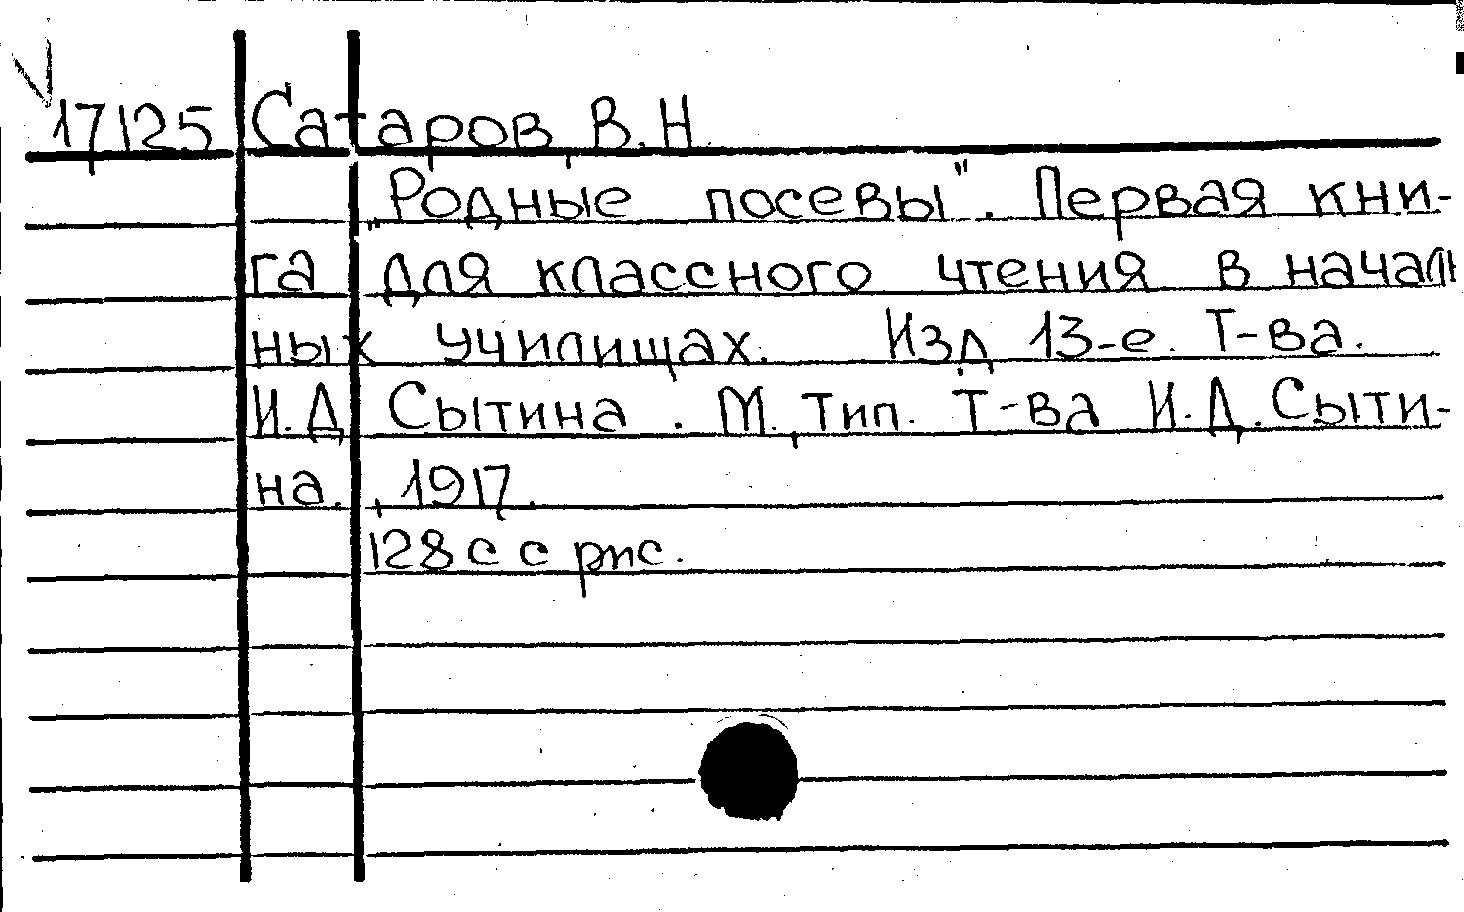 17125 Сатаров, В.Н.
„Родные посевы". Первая кни-
га для классного чтения в началь
ных училищах. Изд 13-е. Т-ва.
И.Д. Сытина. М., Тип. Т-ва И.Д. Сыти-
на., 1917.
128 с с рис.